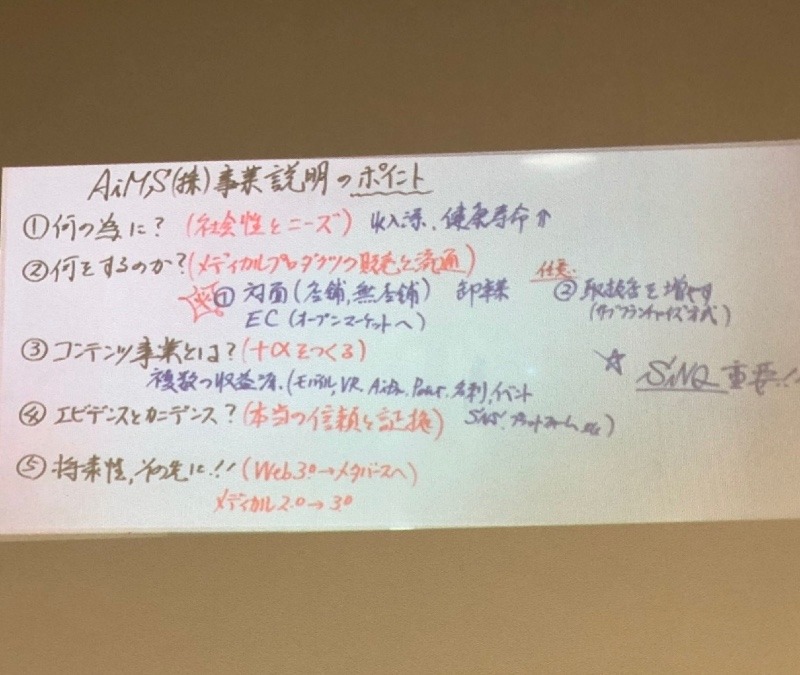 AiMS(株)事業説明のポイント
①何の為に?(社会性とニーズ) 収入源、健康寿命↑
②何をするのか?(メディカルプロダクツの販売と流通)
① 対面(店舗,無店舗) 卸事業 任意 ② 取扱店を増やす
EC(オープンマーケットへ) (サブフランチャイズ方式)
③コンテンツ事業とは?(+αをつくる)
☆ SiNQ重要!!
複数の収益源.(モバイル,VR, イベント
④エビデンスとカニデンス?(本当の信頼と証拠) SNS.プラットフォーム etc)
⑤将来性,その先に!!(Web3.0→メタバースへ)
メディカル2.0→3.0